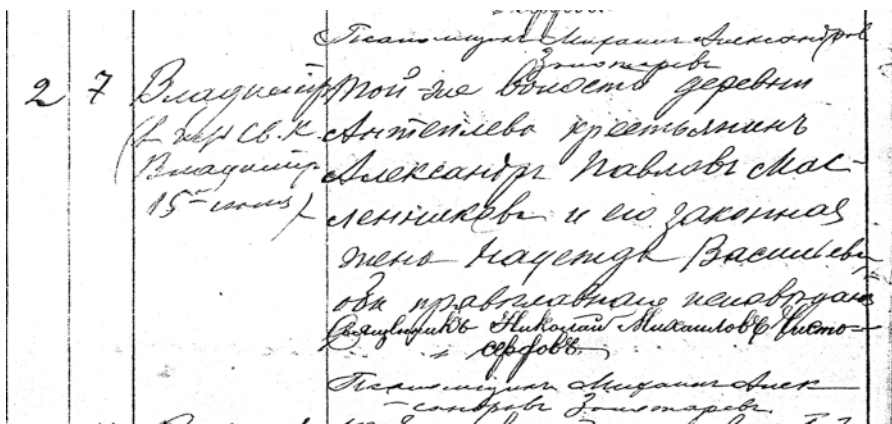 Псаломщикъ Михаилъ Александров
Золотаревъ
2 7 Владимiръ Той-же волости деревни
св. К. Антеплево крестьянинъ
Владимiр Александръ Павловъ Мас-
15го июля) ленниковъ и его законная
жена Надежда Васильева
оба православнаго исповѣданiя
Священникъ Николай Михаиловъ Чисто-
сердовъ.
Псаломщикъ Михаилъ Алек-
сандровъ Золотаревъ